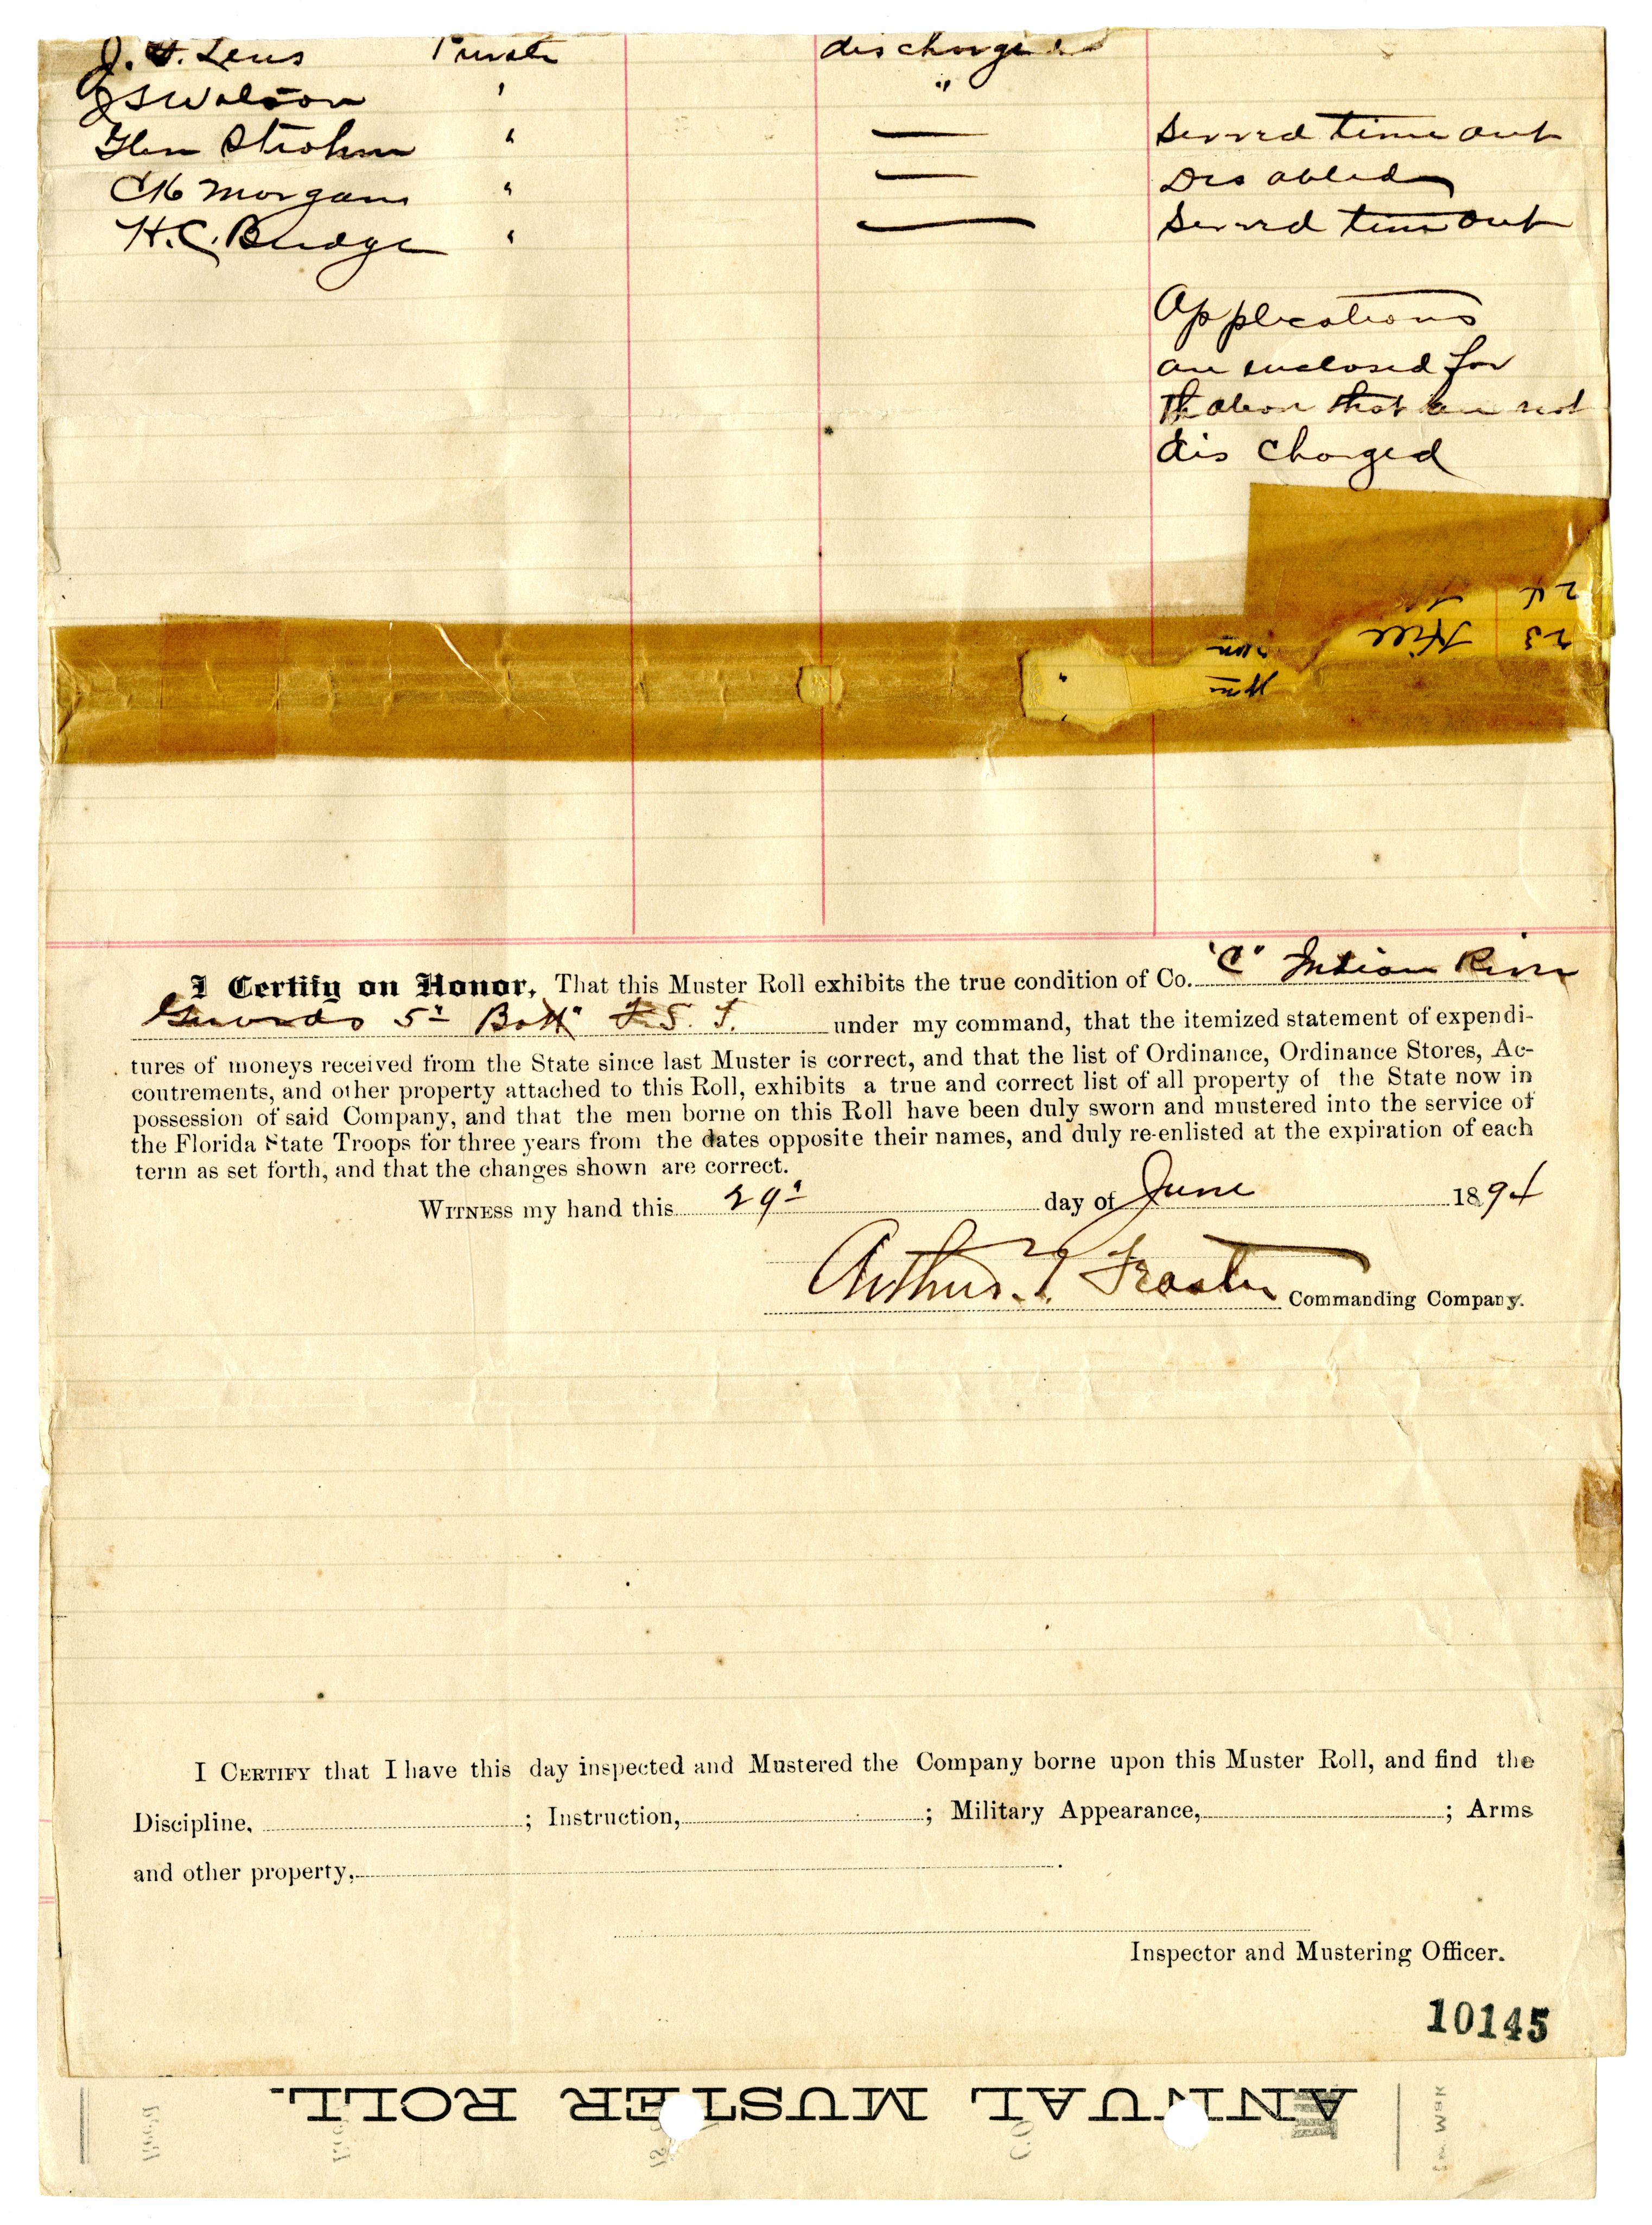 J. H. Lens Private discharged
J S Watson ' "
Glen Strohm " — Served time out
C H Morgan " — Disabled
H. C. Budge " — Served time out
Applications
are enclosed for
Th above that are not
discharged
24
23 Hill
I Certify on Honor, That this Muster Roll exhibits the true condition of Co. "C" Indian River
Guards 5th Batt" F. S. T. under my command, that the itemized statement of expendi-
tures of moneys received from the State since last Muster is correct, and that the list of Ordinance, Ordinance Stores, Ac-
coutrements, and other property attached to this Roll, exhibits a true and correct list of all property of the State now in
possession of said Company, and that the men borne on this Roll have been duly sworn and mustered into the service of
the Florida State Troops for three years from the dates opposite their names, and duly re-enlisted at the expiration of each
term as set forth, and that the changes shown are correct.
WITNESS my hand this 29th day of June 1894
Arthur T. Feaster Commanding Company.
I CERTIFY that I have this day inspected and Mustered the Company borne upon this Muster Roll, and find the
Discipline, ; Instruction, ; Military Appearance, ; Arms
and other property, .
Inspector and Mustering Officer.
10145
ANNUAL MUSTER ROLL.